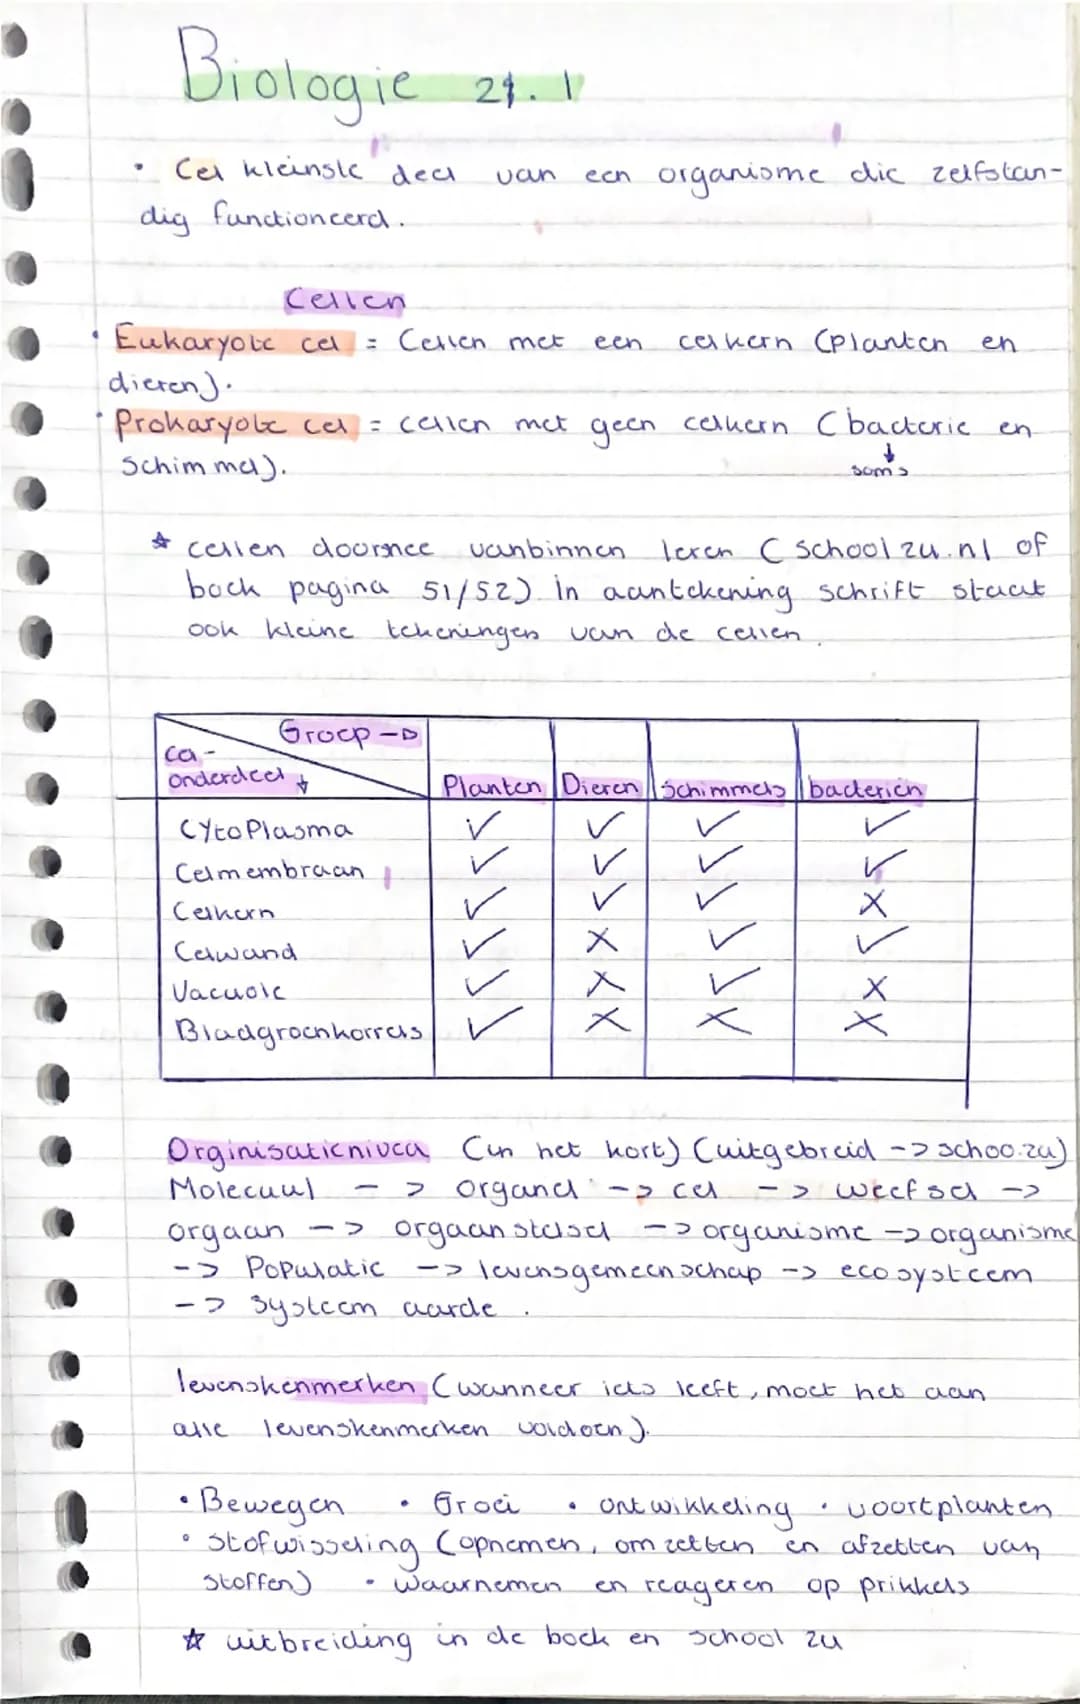 Biologie 21.1
• Cel kleinste deel van een organisme die zelfstan-
dig functioneerd.
Cellen
• Eukaryote cel = Cellen met een celkern (planten en
dieren).
• Prokaryote cel = cellen met geen celkern (bacterie en
schimmel).
↓
soms
☆ cellen doorsnee vanbinnen leren (schoolzu.nl of
boek pagina 51/52) In aantekening schrift staat
ook kleine tekeningen van de cellen.
Groep ->
Cel-
onderdeel ↓
Planten Dieren Schimmels bacteriën
CytoPlasma ✓ ✓ ✓ ✓
Celmembraan ✓ ✓ ✓ ✓
Celkern ✓ ✓ ✓ X
Celwand ✓ X ✓ ✓
Vacuole ✓ X ✓ X
Bladgroenkorrels ✓ X X X
Orginisatienivea (in het kort) (uitgebreid -> schoo.zu)
Molecuul -> organel -> cel -> weefsel ->
orgaan -> orgaanstelsel -> organisme -> organisme
-> Populatie -> levensgemeenschap -> ecosysteem
-> systeem aarde.
levenskenmerken (wanneer iets leeft, moet het aan
alle levenskenmerken voldoen).
• Bewegen • Groei • ontwikkeling • voortplanten
• Stofwisseling (opnemen, omzetten en afzetten van
stoffen) • waarnemen en reageren op prikkels
☆ uitbreiding in de boek en school zu